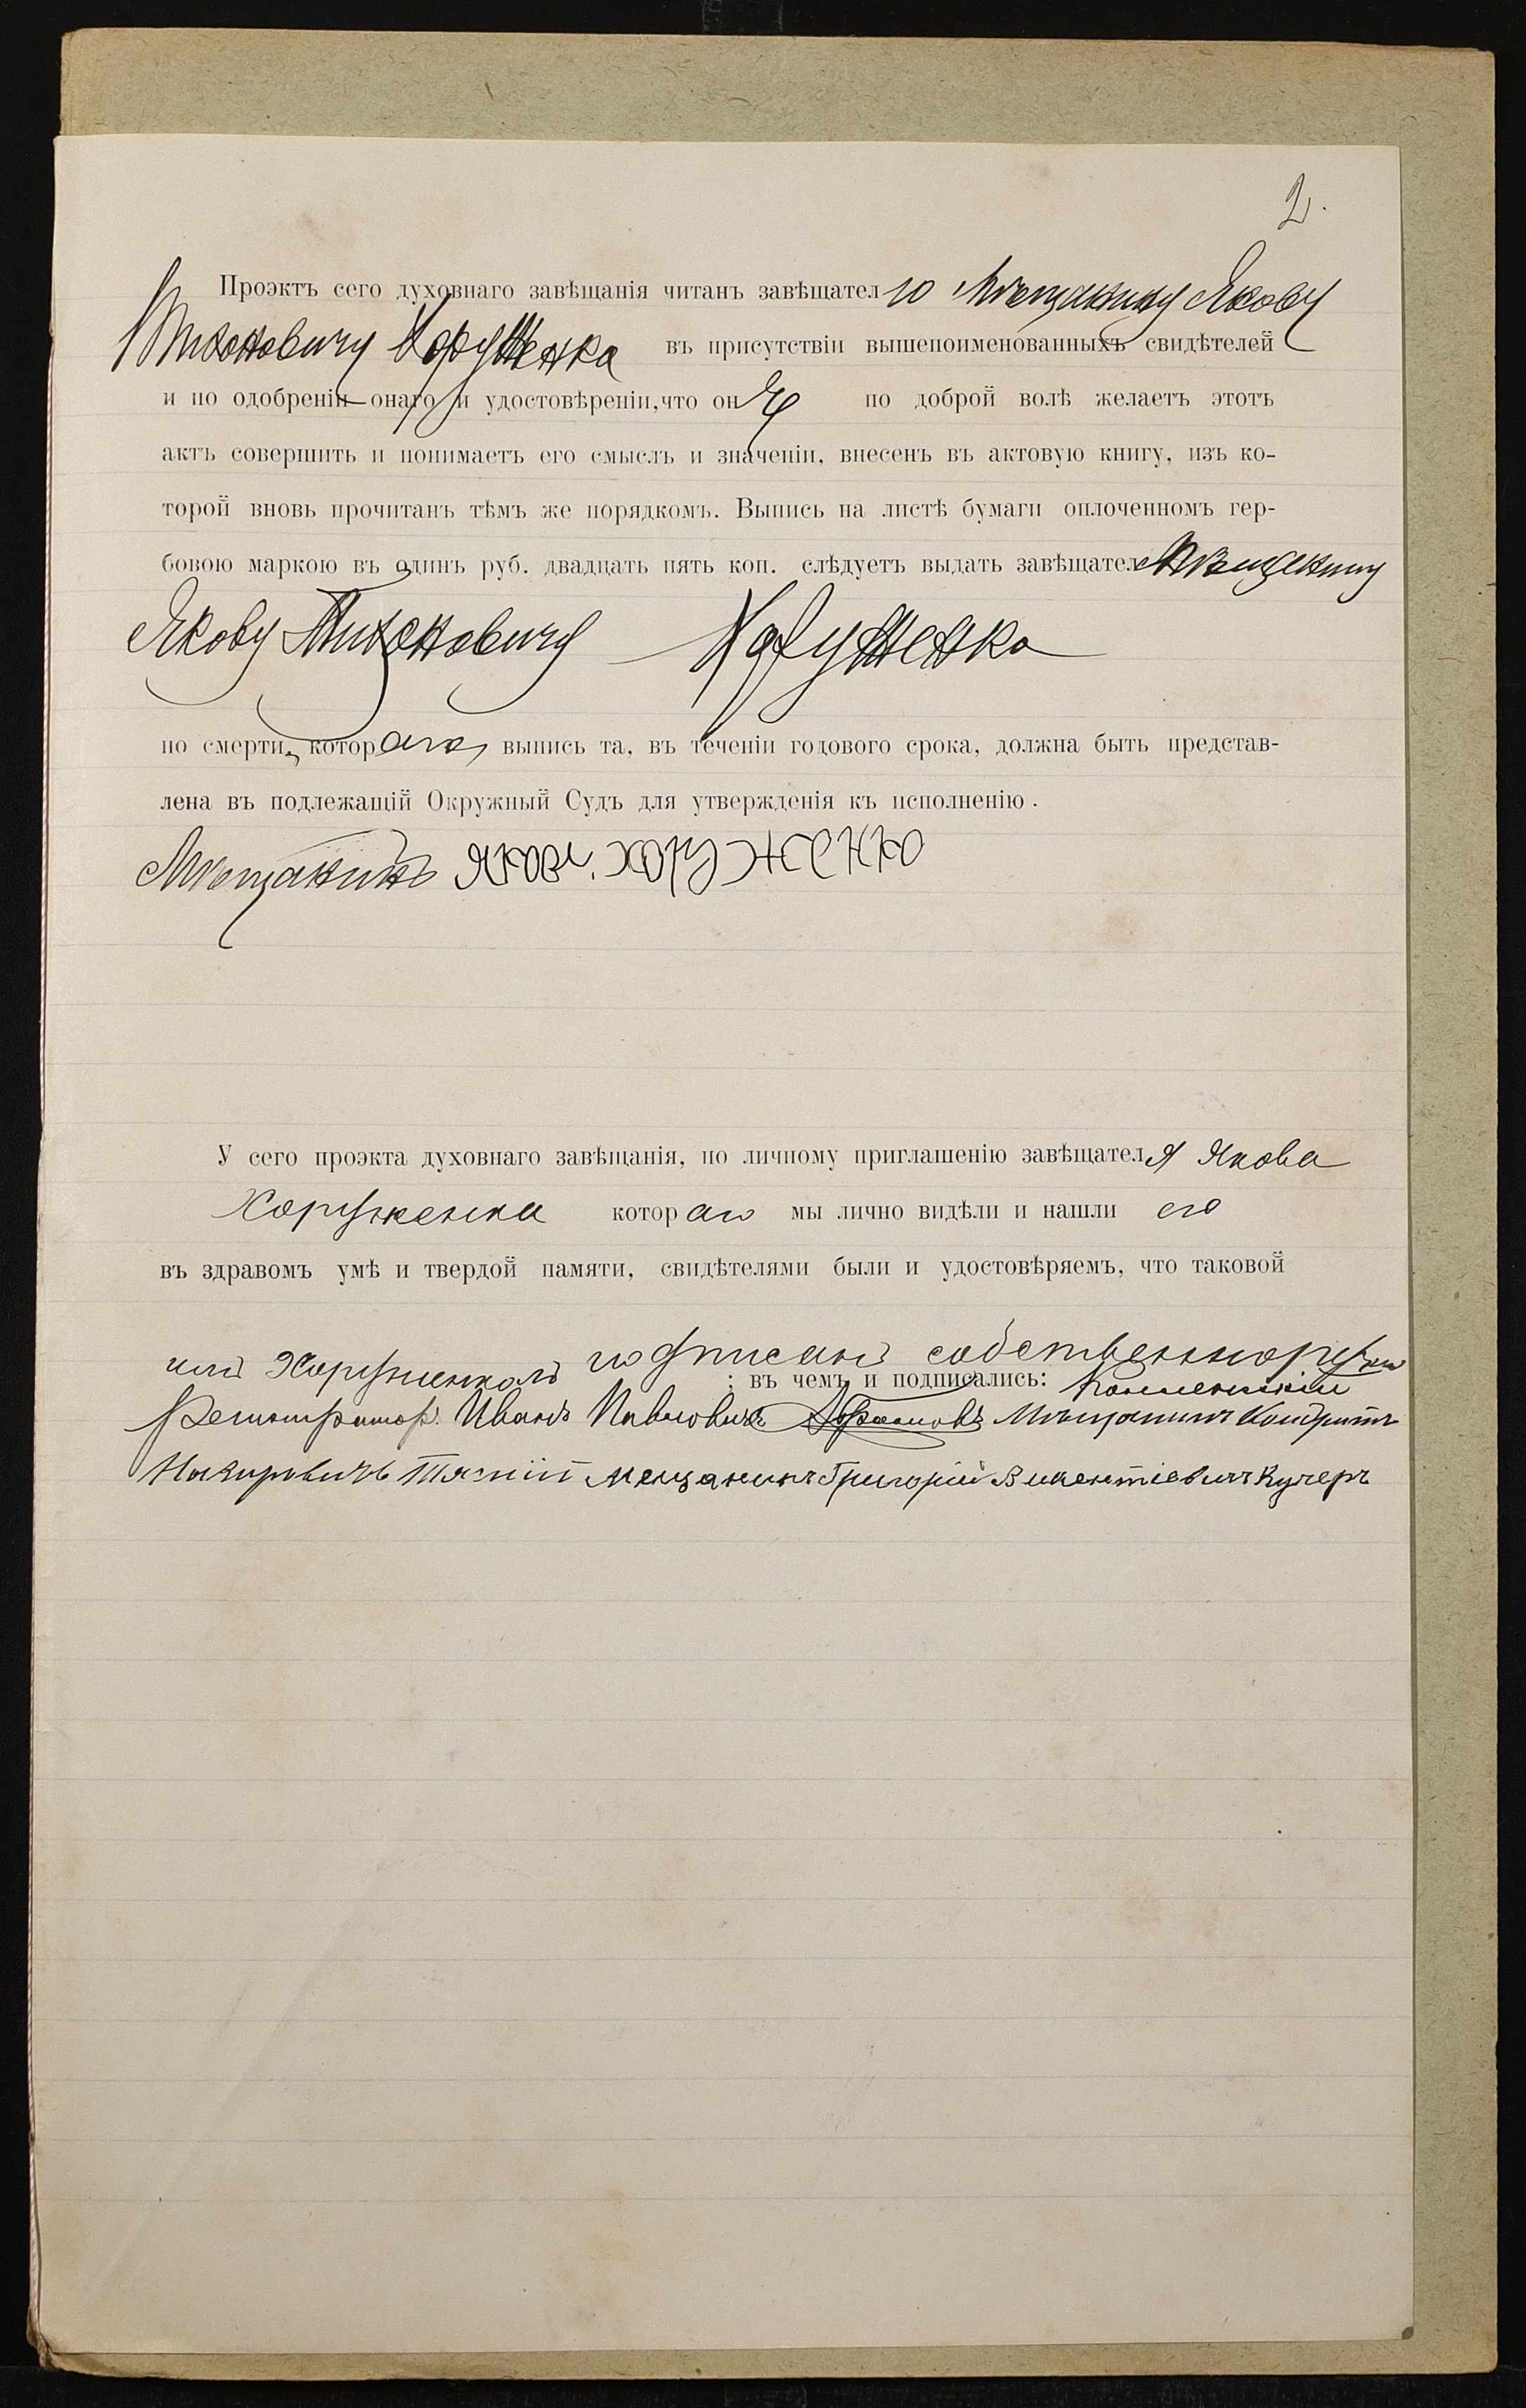 2.
Проэктъ сего духовнаго завѣщанія читанъ завѣщателю Мѣщанину Якову
Тихоновичу Хоруженка въ присутствіи вышепоименованныхъ свидѣтелей
и по одобреніи онаго и удостовѣреніи, что онъ по доброй волѣ желаетъ этотъ
актъ совершить и понимаетъ его смыслъ и значеніи, внесенъ въ актовую книгу, изъ ко-
торой вновь прочитанъ тѣмъ же порядкомъ. Выпись на листѣ бумаги оплоченномъ гер-
бовою маркою въ одинъ руб. двадцать пять коп. слѣдуетъ выдать завѣщателю Мѣщанину
Якову Тихоновичу Хоруженко
по смерти, котораго, выпись та, въ теченіи годового срока, должна быть представ-
лена въ подлежащій Окружный Судъ для утвержденія къ исполненію.
Мѣщанинъ Яковъ Хоруженко
У сего проэкта духовнаго завѣщанія, по личному приглашенію завѣщателя Якова
Хоруженка котораго мы лично видѣли и нашли его
въ здравомъ умѣ и твердой памяти, свидѣтелями были и удостовѣряемъ, что таковой
имъ Хоруженкомъ подписанъ собственноручно
: въ чемъ и подписались:
Регистраторъ Иванъ Павловичъ Мѣщанинъ Кондратъ
Назаровичъ мещанинъ Григорій Викентіевичъ Кучеръ